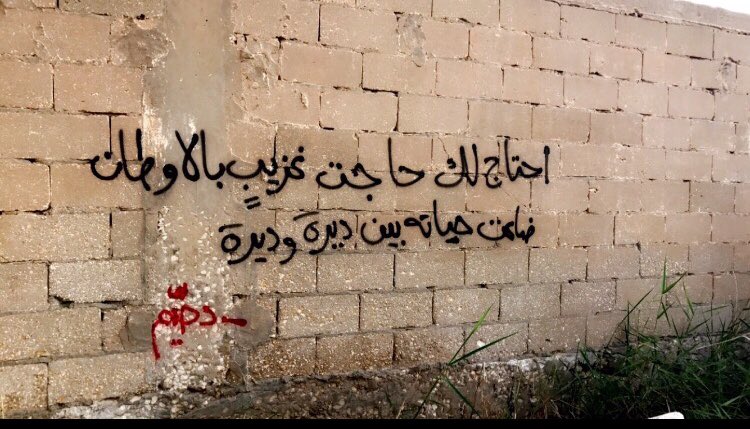 احتاج لك حاجت غريبٍ بالاوطان
ضاعت حياته بين ديرة وديرة
دحيّم